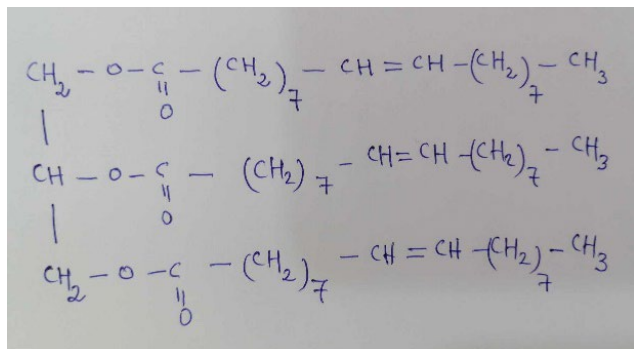 CH₂ - O - C - (CH₂)₇ - CH = CH - (CH₂)₇ - CH₃
||
O
|
CH - O - C - (CH₂)₇ - CH = CH - (CH₂)₇ - CH₃
||
O
|
CH₂ - O - C - (CH₂)₇ - CH = CH - (CH₂)₇ - CH₃
||
O